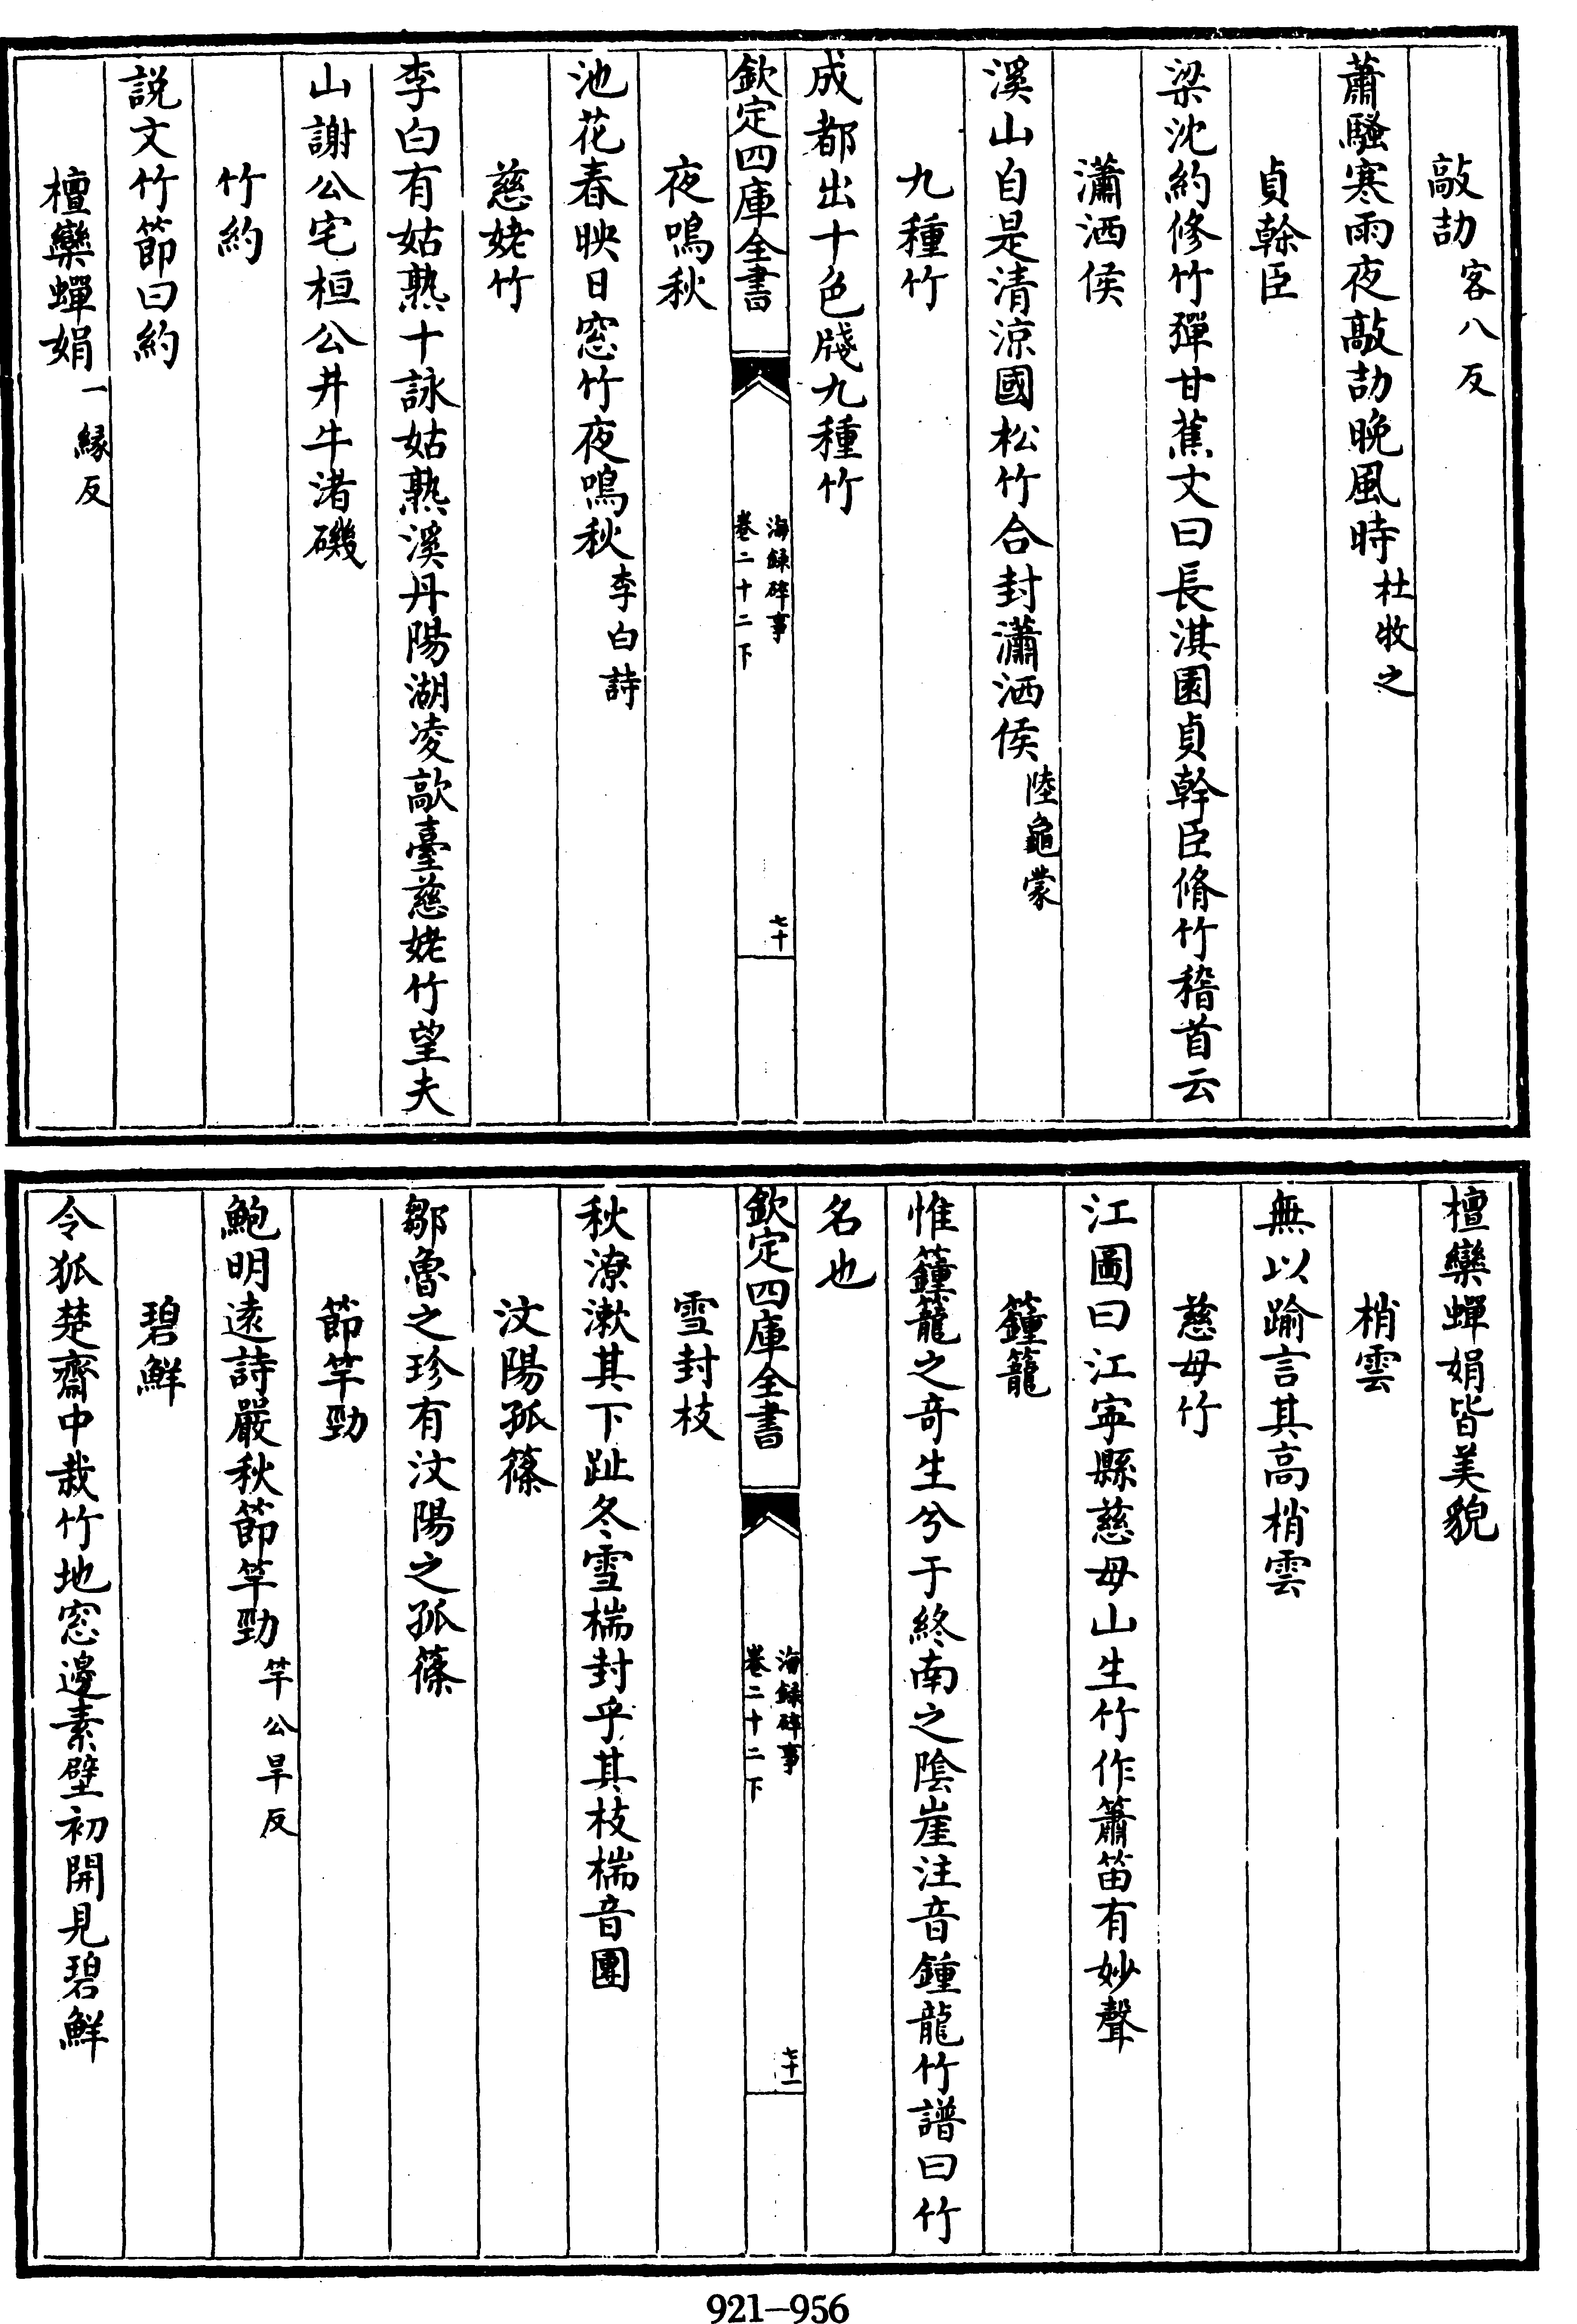 敲劼客八反
蕭騷寒雨夜敲劼晚風時杜牧之
貞榦臣
梁沈約修竹彈甘蕉文曰長淇園貞幹臣脩竹稽首云
瀟洒侯
溪山自是清涼國松竹合封瀟洒侯陸龜蒙
九種竹
成都出十色牋九種竹
欽定四庫全書 海錄碎事卷二十二下 七十
夜鳴秋
池花春映日窓竹夜鳴秋李白詩
慈姥竹
李白有姑熟十詠姑熟溪丹陽湖凌歊臺慈姥竹望夫
山謝公宅桓公井牛渚磯
竹約
説文竹節曰約
檀欒蟬娟一緣反
檀欒蟬娟皆美貌
梢雲
無以踰言其高梢雲
慈母竹
江圖曰江寕縣慈母山生竹作簫笛有妙聲
籦籠
惟籦籠之竒生兮于終南之隂崖注音鍾龍竹譜曰竹
名也
欽定四庫全書 海錄碎事卷二十二下 七十一
雪封枝
秋潦漱其下趾冬雪椯封乎其枝椯音團
汶陽孤篠
鄒魯之珍有汶陽之孤篠
節竿勁
鮑明逺詩嚴秋節竿勁竿公旱反
碧鮮
令狐楚齋中栽竹地窓邊素壁初開見碧鮮
921-956